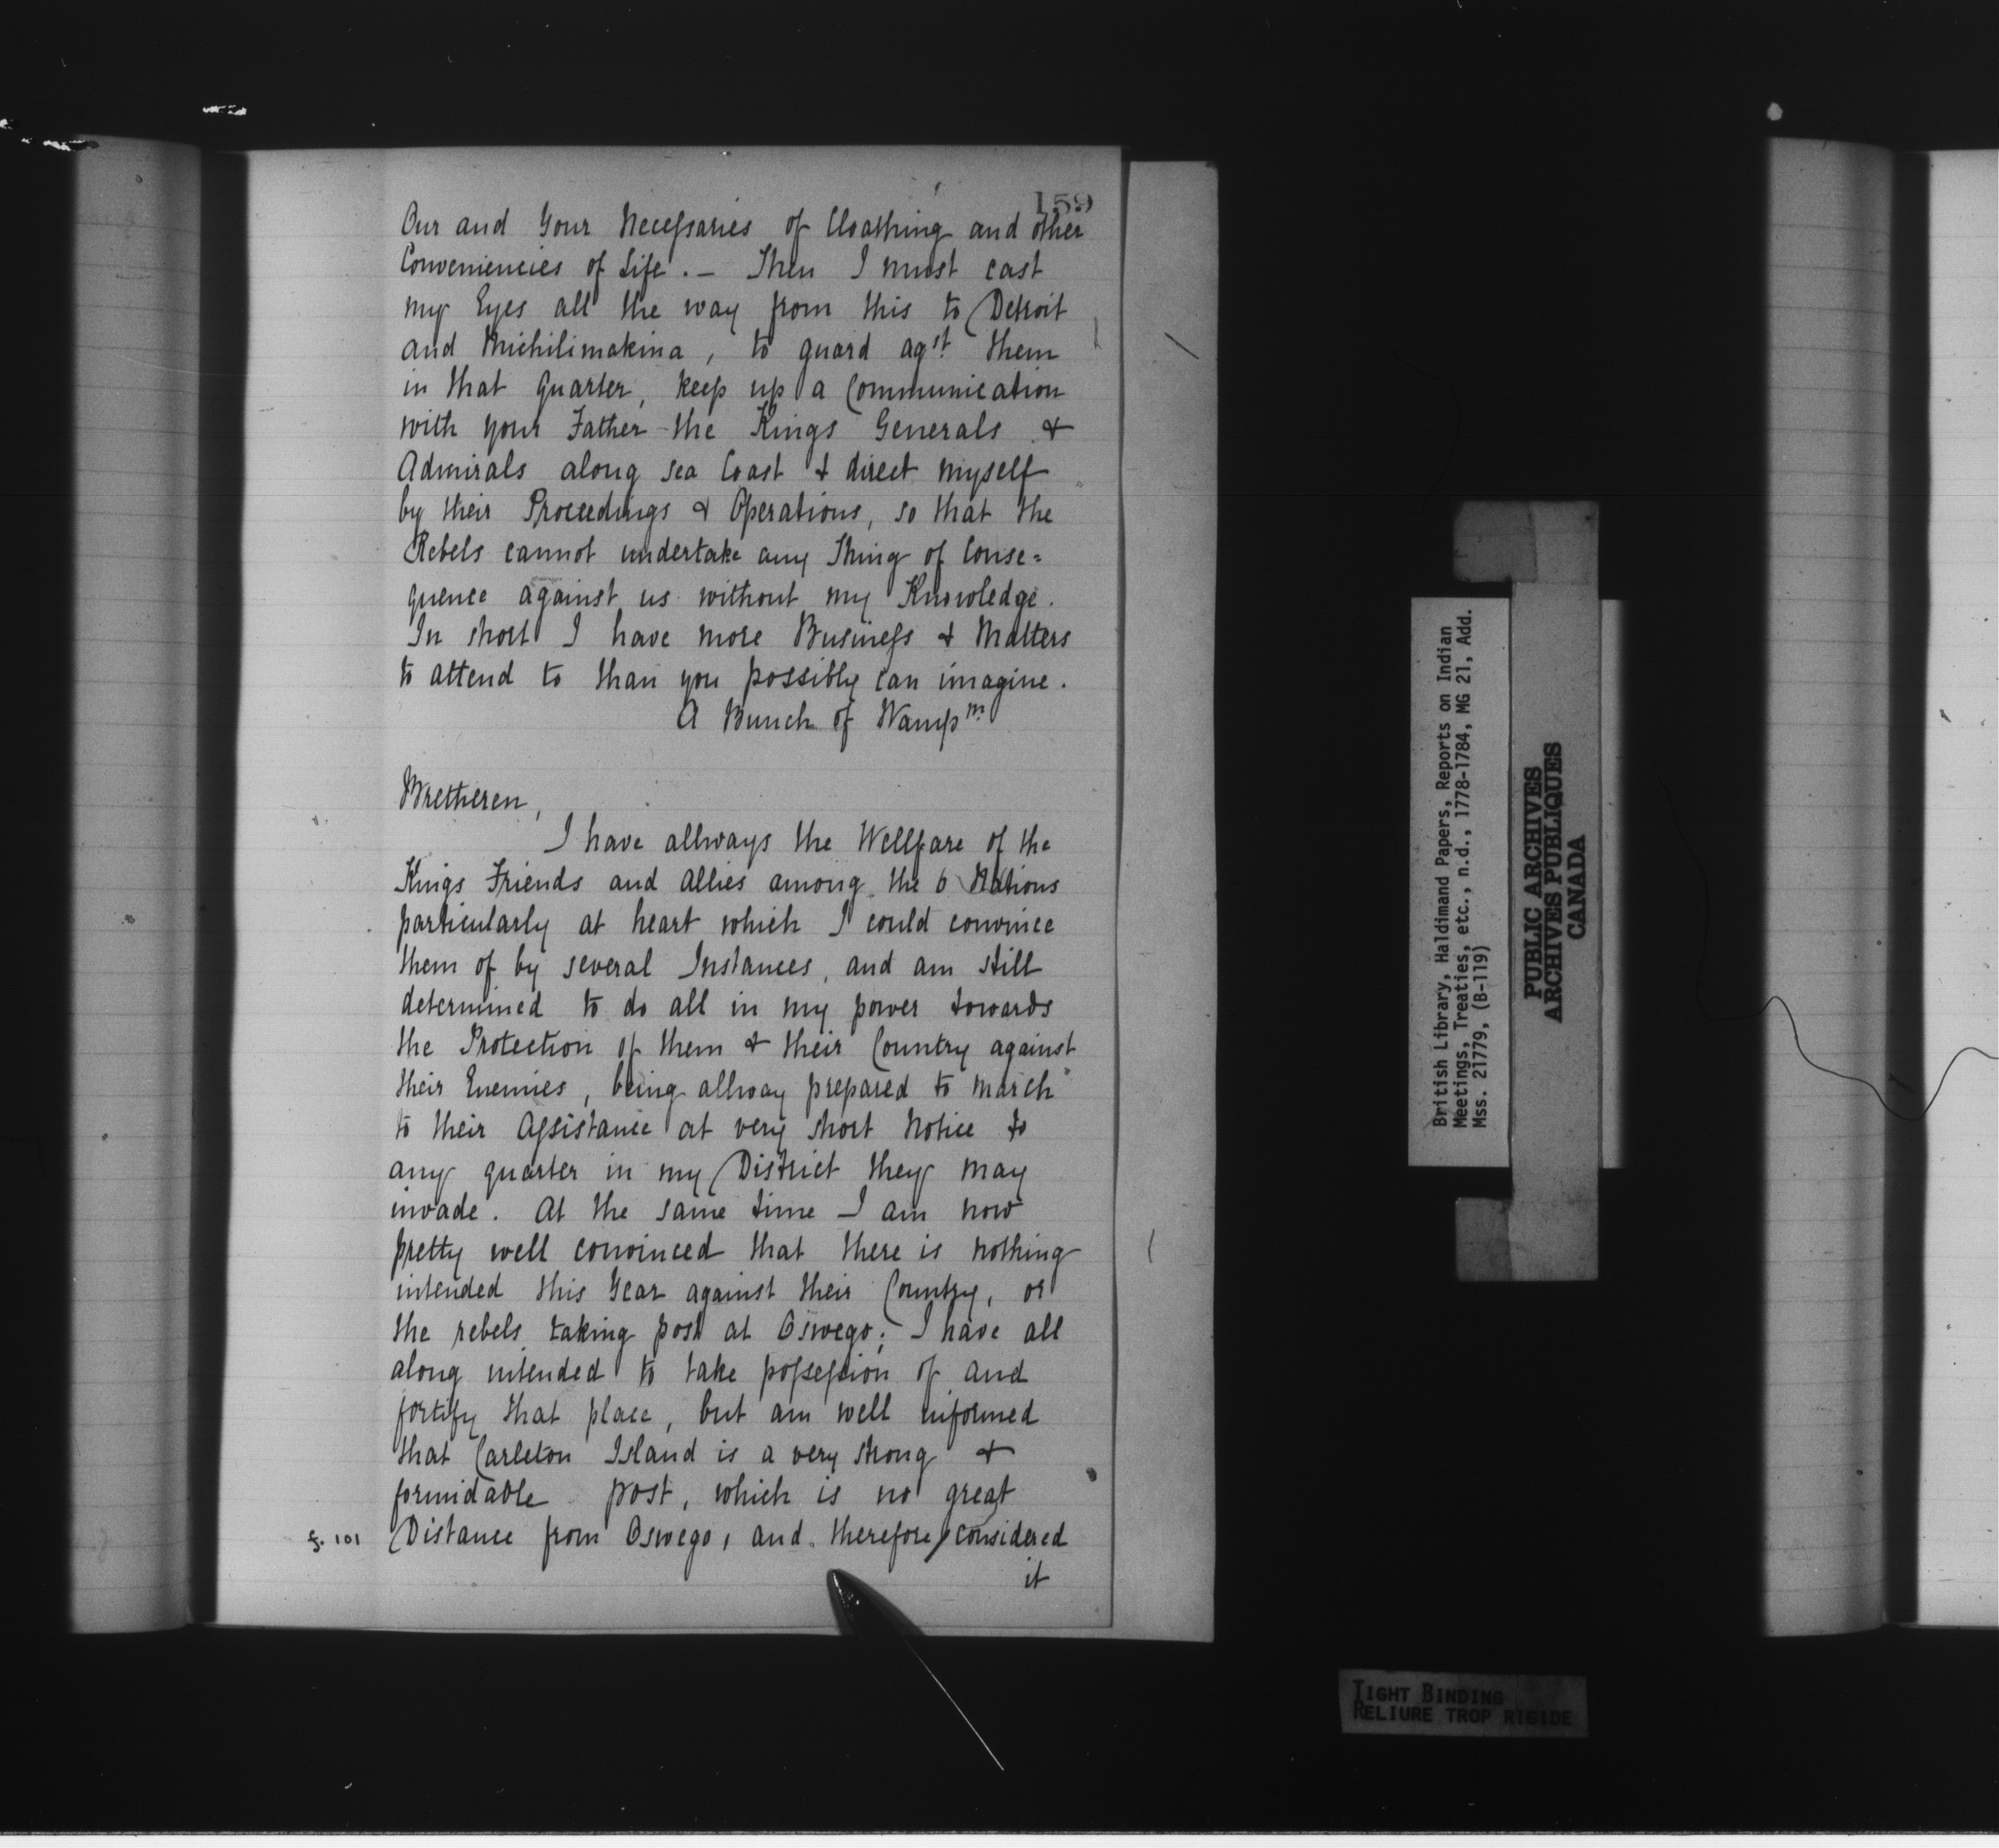 159
Our and Your Necessaries of Cloathing and other
Conveniencies of Life. — Then I must cast
my Eyes all the way from this to Detroit
and Michilimakina, to guard agst. them
in that Quarter, keep up a Communication
with your Father the Kings Generals &
Admirals along sea Coast & direct myself
by their Proceedings & Operations, so that the
Rebels cannot undertake any Thing of Conse=
quence against us without my Knowledge.
In short I have more Business & Matters
to attend to than you possibly can imagine.
A Bunch of Wampm.
Bretheren,
I have allways the Wellfare of the
Kings Friends and Allies among the 6 Nations
particularly at heart which I could convince
them of by several Instances, and am still
determined to do all in my power towards
the Protection of them & their Country against
their Enemies, being allway prepared to march
to their Assistance at very short Notice to
any quarter in my District they may
invade. At the same time I am now
pretty well convinced that there is nothing
intended this Year against their Country, or
the rebels taking post at Oswego; I have all
along intended to take possession of and
fortify that place, but am well informed
that Carleton Island is a very strong &
formidable post, which is no great
f. 101 Distance from Oswego, and therefore / considered
it
British Library, Haldimand Papers, Reports on Indian
Meetings, Treaties, etc., n.d., 1778-1784, MG 21, Add.
Mss. 21779, (B-119)
PUBLIC ARCHIVES
ARCHIVES PUBLIQUES
CANADA
TIGHT BINDING
RELIURE TROP RIGIDE